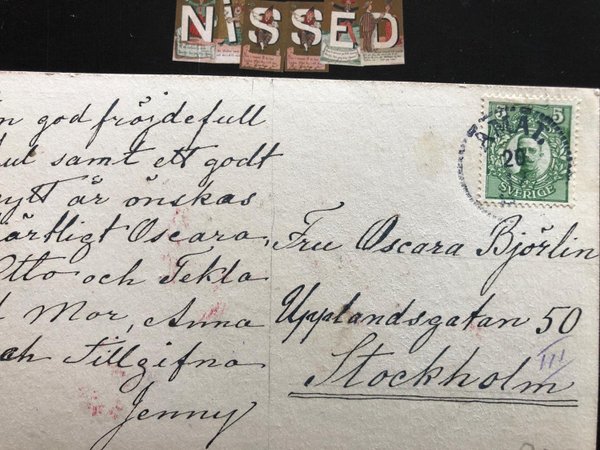 NiSSED
n god fröjdefull
ul samt ett godt
nytt år önskas
ärtligt Oscara,
Otto och Tekla
Mor, Anna
ch Tillgifna
Jenny
5 5
SVERIGE
ÅMÅL
20
Fru Oscara Björlin
Upplandsgatan 50
III
Stockholm